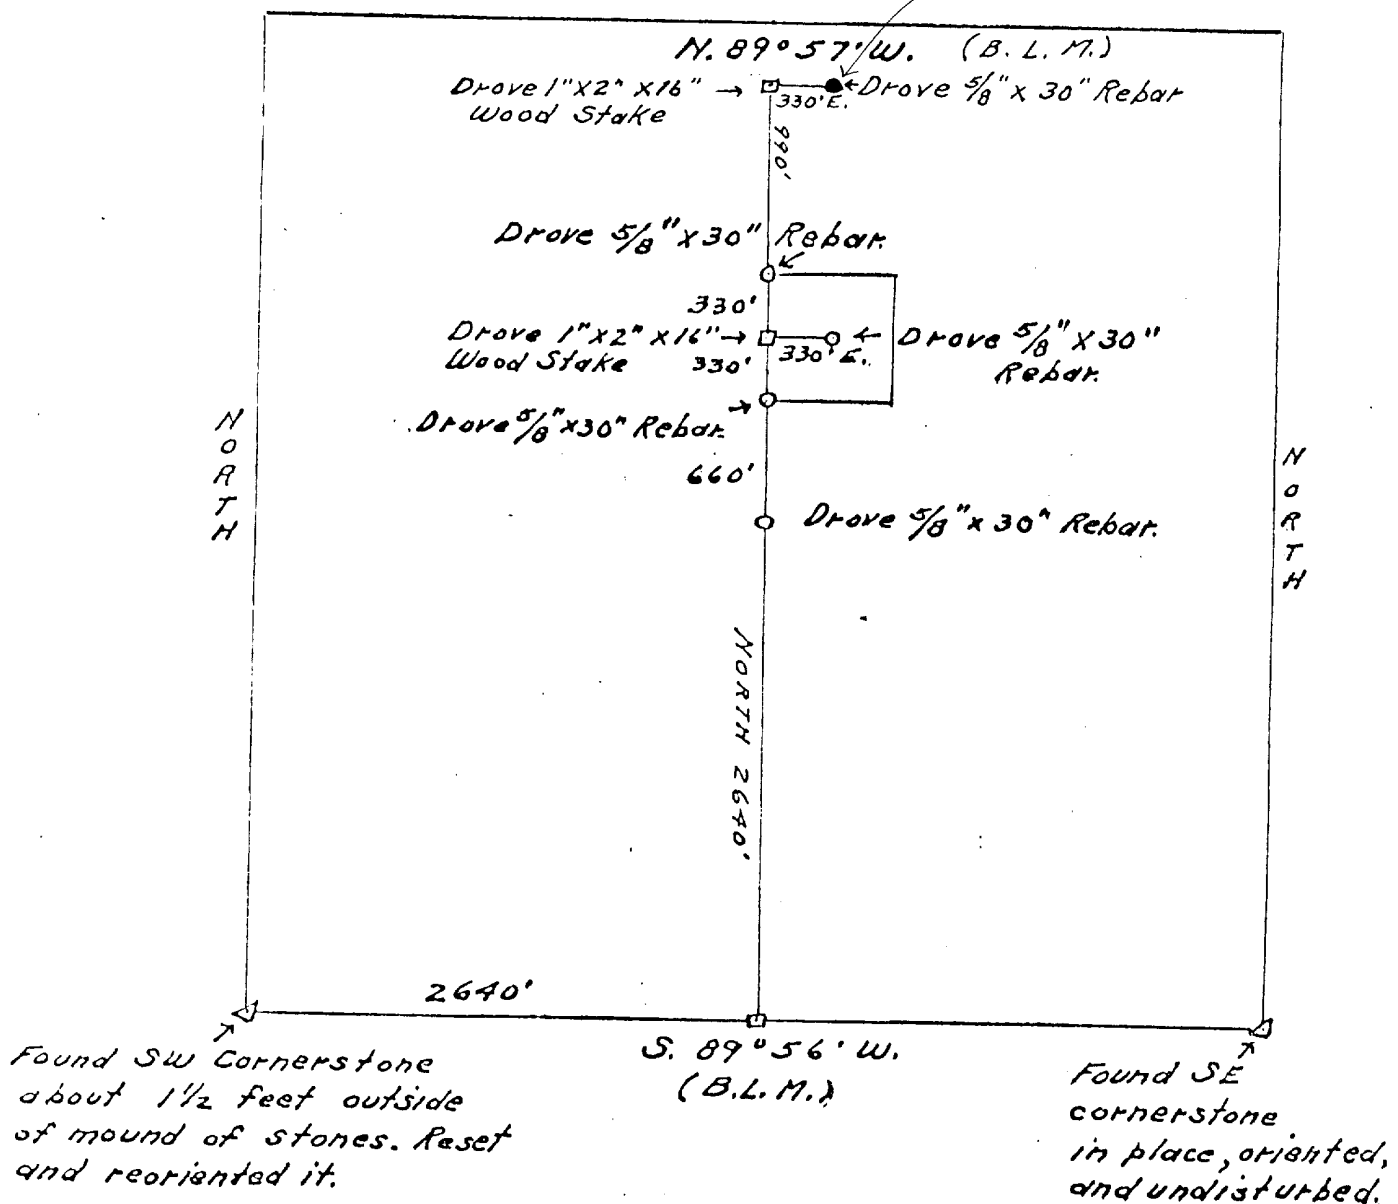 N. 89°57' W. (B. L. M.)
Drove 1" X 2" X 16" → ← Drove 5/8" x 30" Rebar
Wood Stake
330' E.
990'
Drove 5/8" X 30" Rebar.
330'
Drove 1" X 2" X 16" →
Wood Stake
330'
330' E.
← Drove 5/8" X 30"
Rebar.
Drove 5/8" X 30" Rebar.
660'
Drove 5/8" x 30" Rebar.
NORTH
NORTH
NORTH 2640'
2640'
S. 89°56' W.
(B.L.M.)
Found SW Cornerstone
about 1 1/2 feet outside
of mound of stones. Reset
and reoriented it.
Found SE
cornerstone
in place, oriented,
and undisturbed.